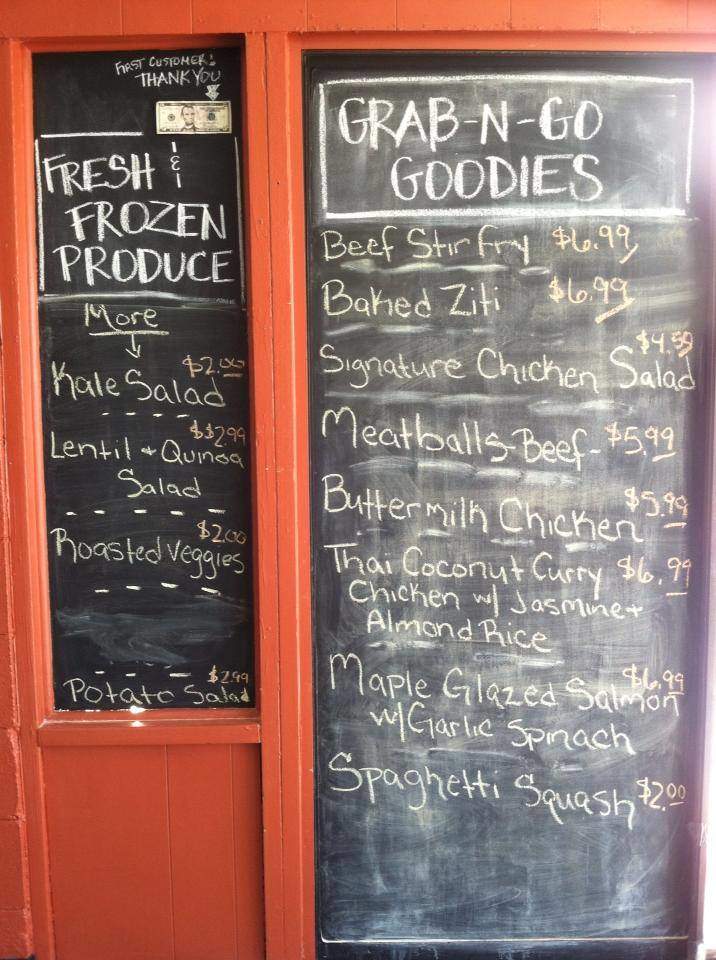 FIRST CUSTOMER!
THANK YOU
FRESH &
FROZEN
PRODUCE
More
$2.00
Kale Salad
$2.99
Lentil + Quinoa
Salad
$2.00
Roasted Veggies
$2.99
Potato Salad
GRAB-N-GO
GOODIES
Beef Stir Fry $6.99
Baked Ziti $6.99
$4.59
Signature Chicken Salad
Meatballs-Beef- $5.99
Buttermilk Chicken $5.99
Thai Coconut Curry $6.99
Chicken w/ Jasmine +
Almond Rice
Maple Glazed Salmon $6.99
w/Garlic Spinach
Spaghetti Squash $2.00